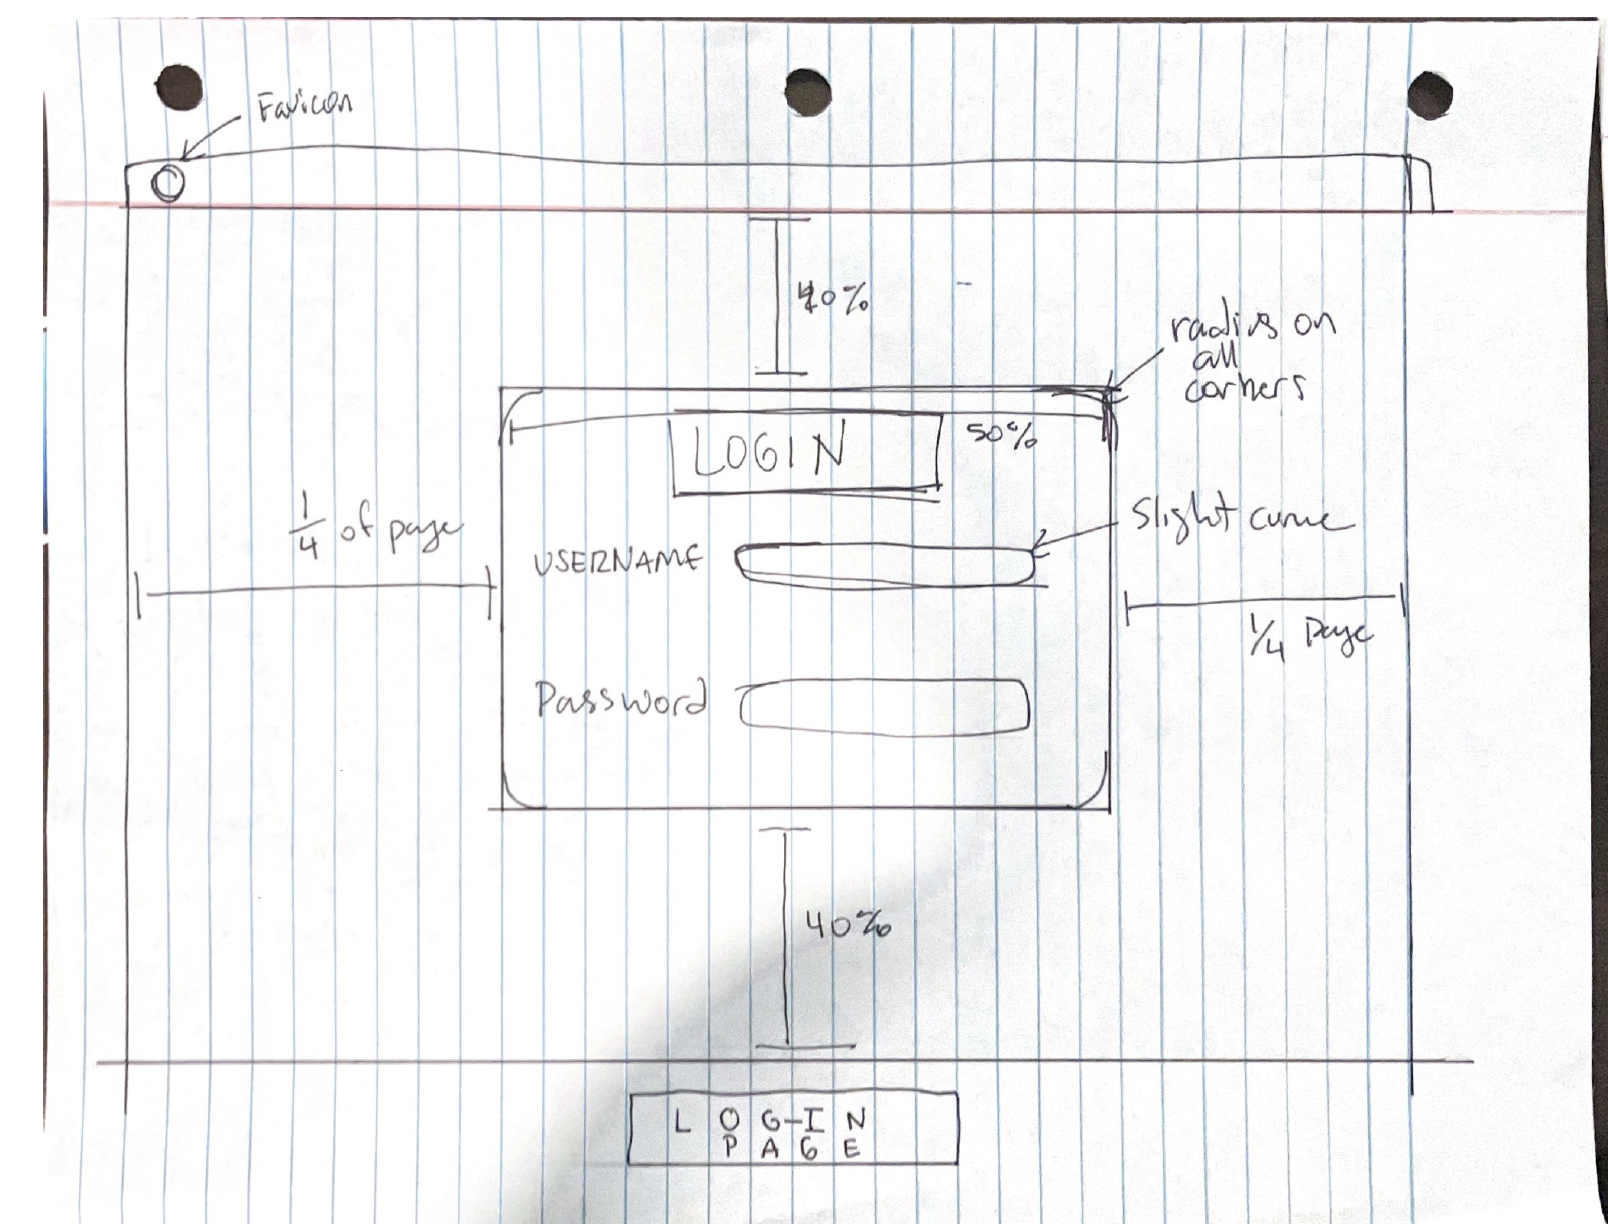 Favicon
40%
radius on
all
corners
LOGIN
50%
1/4 of page
USERNAME
Slight curve
1/4 Page
Password
40%
LOG-IN
PAGE